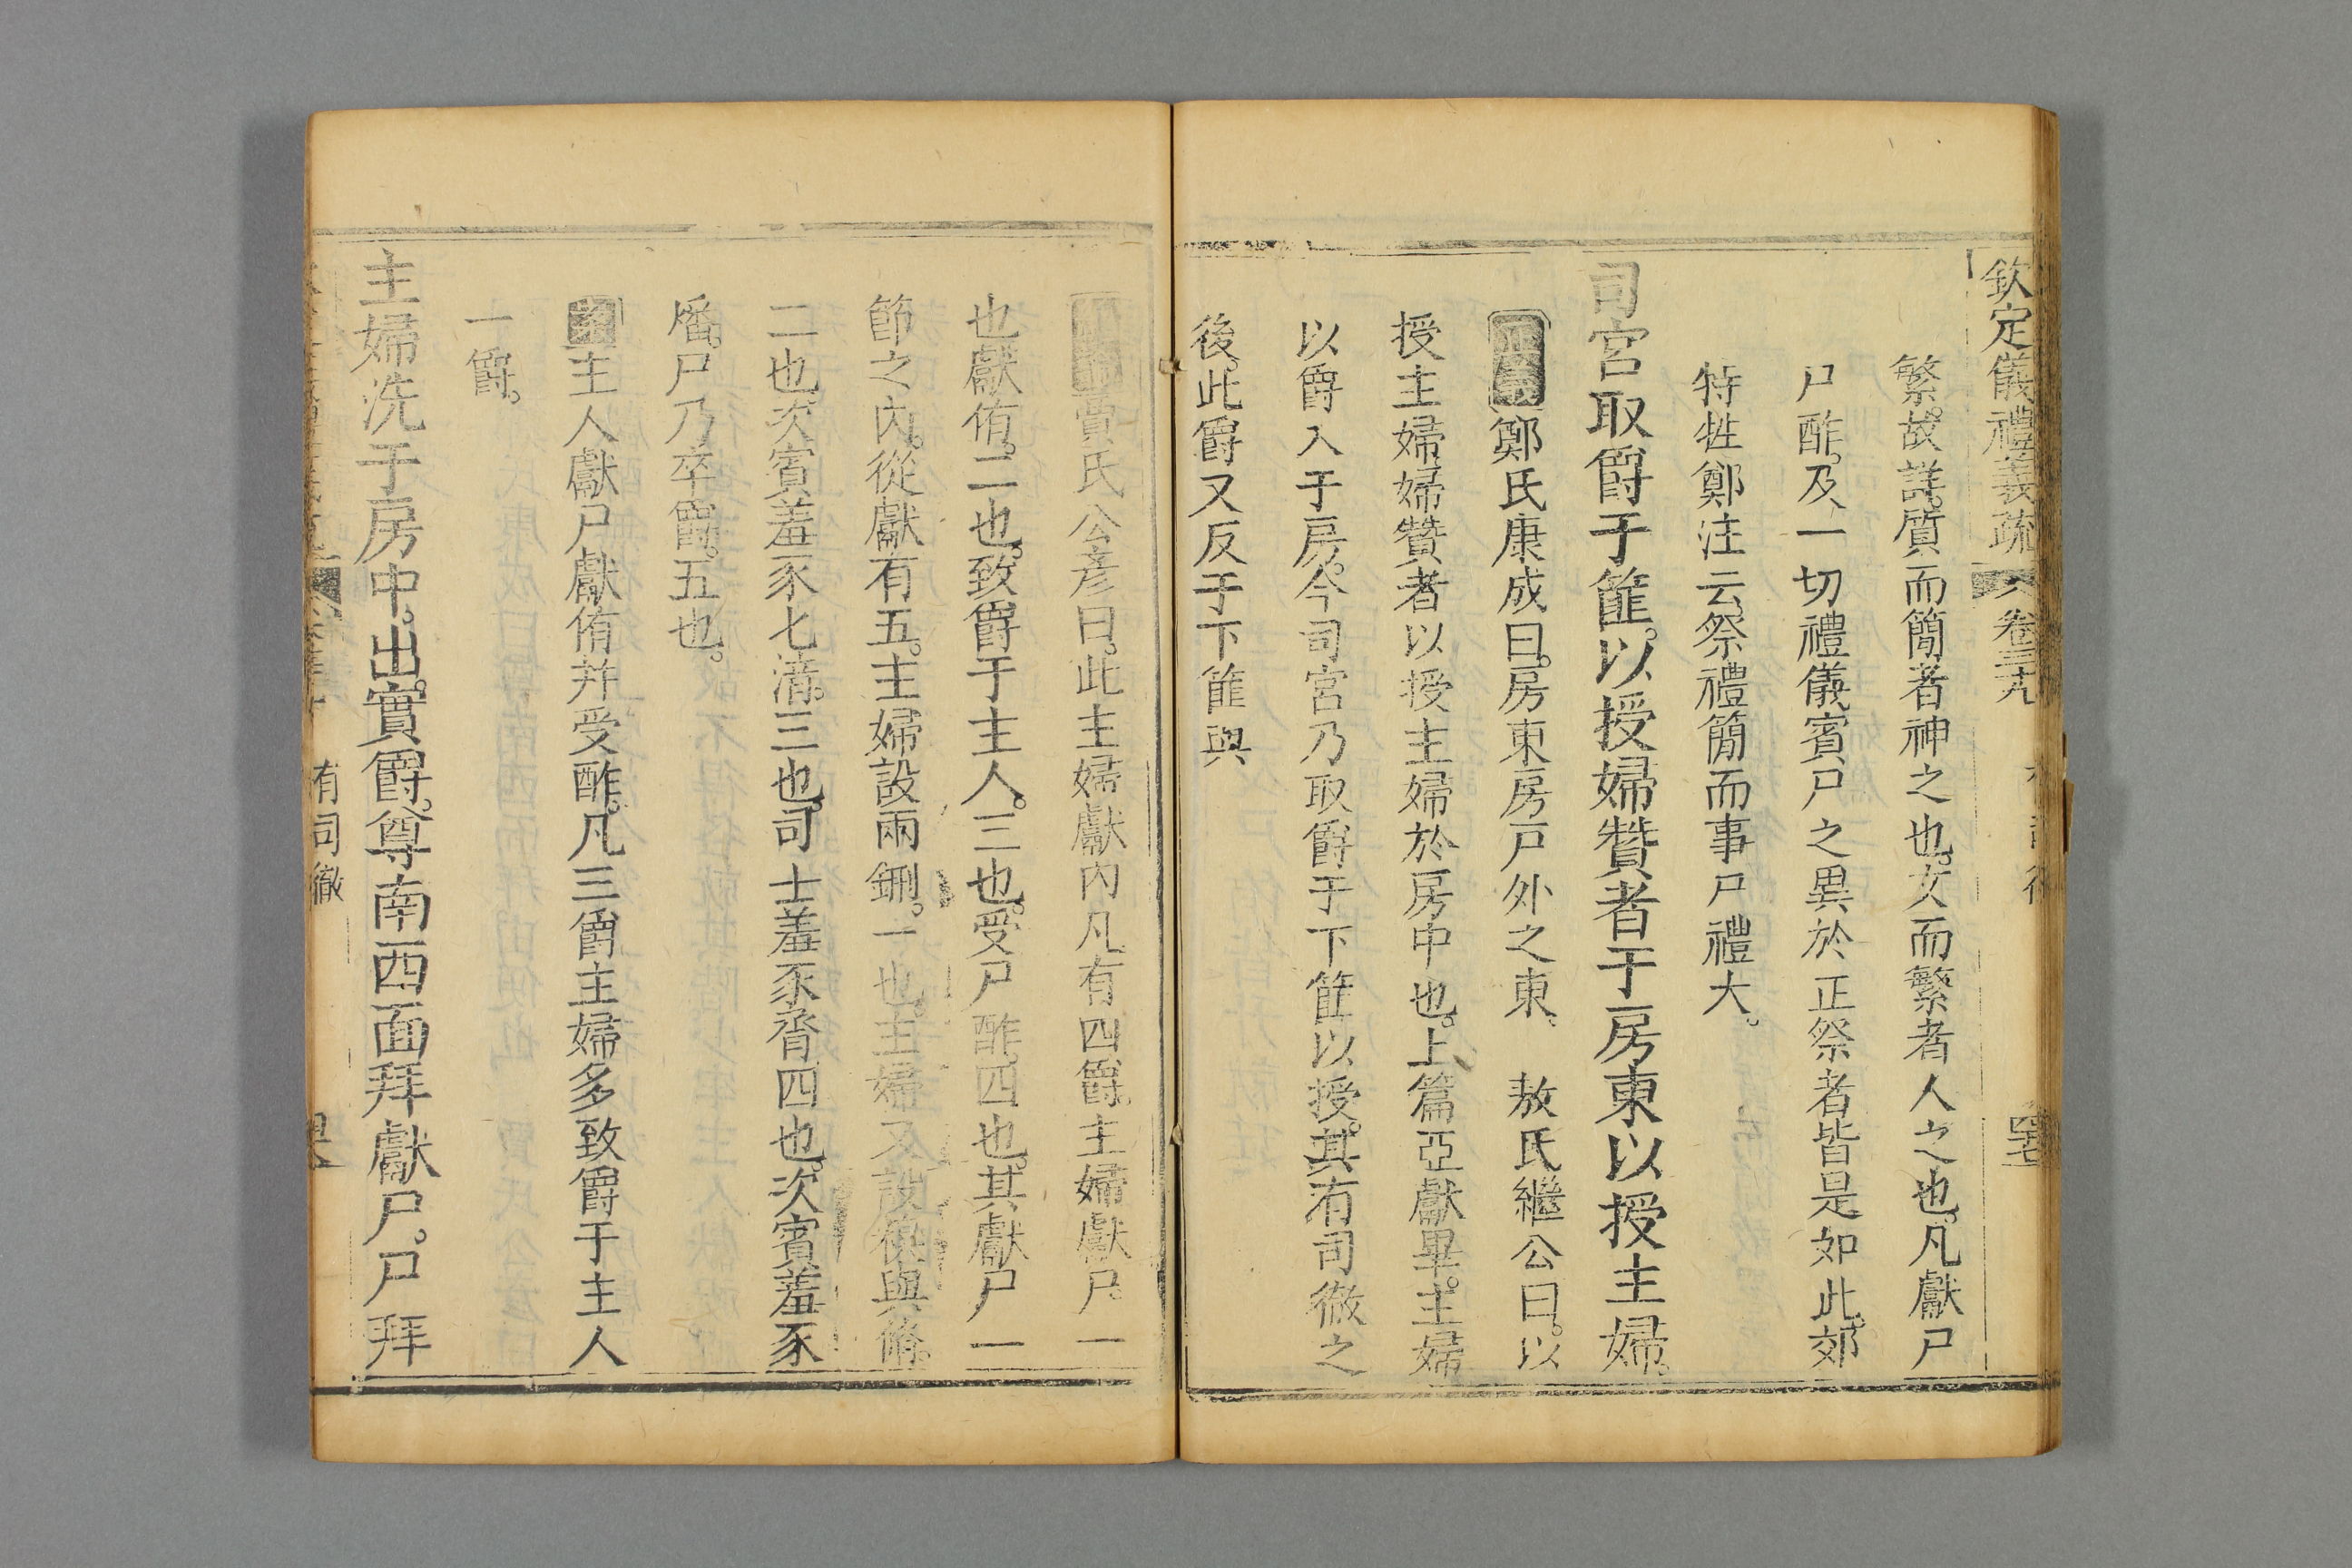 欽定儀禮義疏 卷三十九
繁。故詳。質而簡者神之也。文而繁者人之也。凡獻尸
尸酢。及一切禮儀賓尸之異於正祭者皆是如此。郊
特牲鄭注云。祭禮簡而事尸禮大。
司宮取爵于篚。以授婦贊者于房東以授主婦。
鄭氏康成曰。房東房戶外之東。 敖氏繼公曰。以
授主婦婦贊者以授主婦於房中也。上篇亞獻畢。主婦
以爵入于房。今司宮乃取爵于下篚以授。其有司徹之
後。此爵又反于下篚與
賈氏公彥曰。此主婦獻內凡有四爵。主婦獻尸。一
也獻侑。二也。致爵于主人。三也。受尸酢。四也。其獻尸一
節之內。從獻有五。主婦設兩鉶。一也。主婦又設糗與脩。
二也。次賓羞豕匕湆。三也。司士羞豕脀四也。次賓羞豕
燔。尸乃卒爵。五也。
主人獻尸獻侑并受酢。凡三爵主婦多致爵于主人
一爵。
主婦洗于房中。出。實爵。尊南西面拜獻尸。尸拜
有司徹